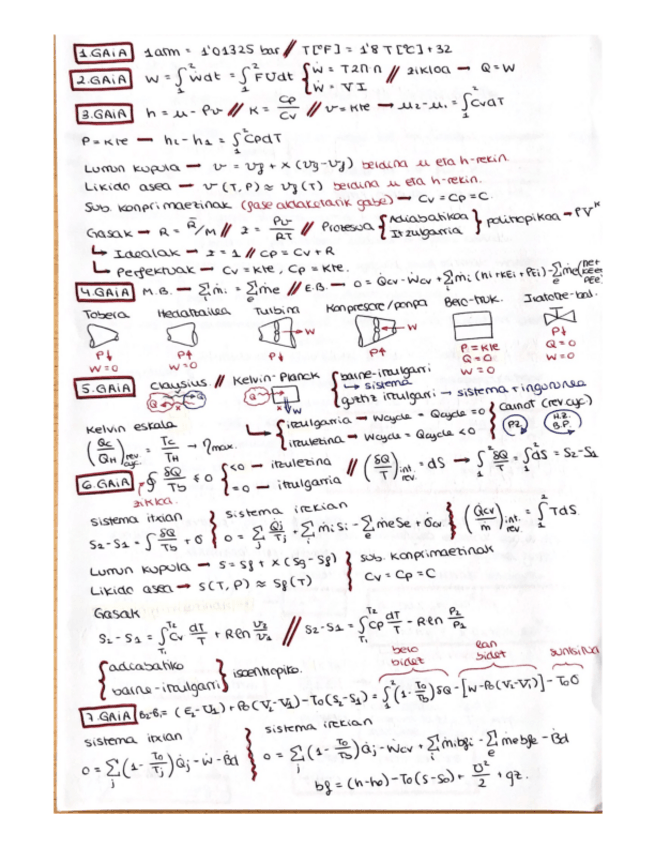 1.GAIA 1atm = 1'01325 bar // T[ºF] = 1'8 T[ºC] + 32
2.GAIA W = ∫₁² Ẇdt = ∫₁² F·Ʋdt { Ẇ = T2πn / Ẇ = V I // zikloa → Q = W
3.GAIA h = u - Pv // K = Cp/Cv // v = Kte → u2 - u1 = ∫₁² CvdT
P = Kte → h2 - h1 = ∫₁² CpdT
Lurrun kupula → v = vf + x (vg - vf) berdina u eta h-rekin.
Likido asea → v (T, P) ≈ vf (T) berdina u eta h-rekin.
Sub. konprimaezinak (fase aldaketarik gabe) → Cv = Cp = C.
Gasak → R = R̄/M // z = Pv/RT // Prozesua { Adiabatikoa / Itzulgarria } politropikoa → PVᴷ
↳ Idealak → z = 1 // Cp = Cv + R
↳ Perfektuak → Cv = Kte, Cp = Kte.
4.GAIA M.B. → Σi ṁi = Σe ṁe // E.B. → 0 = Q̇cv - Ẇcv + Σi ṁi (hi + KEi + PEi) - Σe ṁe (he+ KEe+ PEe)
Tobera Hedatzailea Turbina Konpresore/ponpa Bero-truk. Itotze-bal.
W W
P↓ P↑ P↓ P↑ P = Kte P↓
W=0 W=0 Q=0 Q=0
W=0 W=0
5.GAIA Clausius // Kelvin-Planck { barne-itzulgarri ↳ sistema / guztiz itzulgarri → sistema + ingurunea
Q Q Q W
Kelvin eskala
(Qc/QH) rev. cyc. = Tc/TH → ηmax.
↳ { itzulgarria → Wcycle = Qcycle = 0 / itzulezina → Wcycle = Qcycle < 0 } Carnot (rev cyc) PZ H.Z. B.P.
6.GAIA ∮ δQ/Tb ≤ 0 { <0 → itzulezina / =0 → itzulgarria // (δQ/T) int. rev. = dS → ∫₁² δQ/T = ∫₁² dS = S2 - S1
zikloa.
sistema itxian
S2 - S1 = ∫ δQ/Tb + σ
sistema irekian
0 = Σj Q̇j/Tj + Σi ṁi si - Σe ṁe se + σ̇cv } (Q̇cv/ṁ) int. rev. = ∫₁² TdS
Lurrun kupula → s = sf + x (sg - sf) } sub. konprimaezinak
Likido asea → s (T, P) ≈ sf (T) Cv = Cp = C
Gasak
s2 - s1 = ∫T1 T2 Cv dT/T + R ln v2/v1 // s2 - s1 = ∫T1 T2 Cp dT/T - R ln P2/P1
{ adiabatiko / barne-itzulgarri } isoentropiko.
bero bidez lan bidez suntsitua
7.GAIA B2-B1 = (E2 - U1) + P0 (V2 - V1) - T0 (S2 - S1) = ∫₁² (1 - T0/Tb) δQ - [W - P0 (V2 - V1)] - T0σ
sistema itxian
0 = Σj (1 - T0/Tj) Q̇j - Ẇ - Ḃd
sistema irekian
0 = Σj (1 - T0/Tb) Q̇j - Ẇcv + Σi ṁi bfi - Σe ṁe bfe - Ḃd
bf = (h - h0) - T0 (s - s0) + Ʋ²/2 + gz.